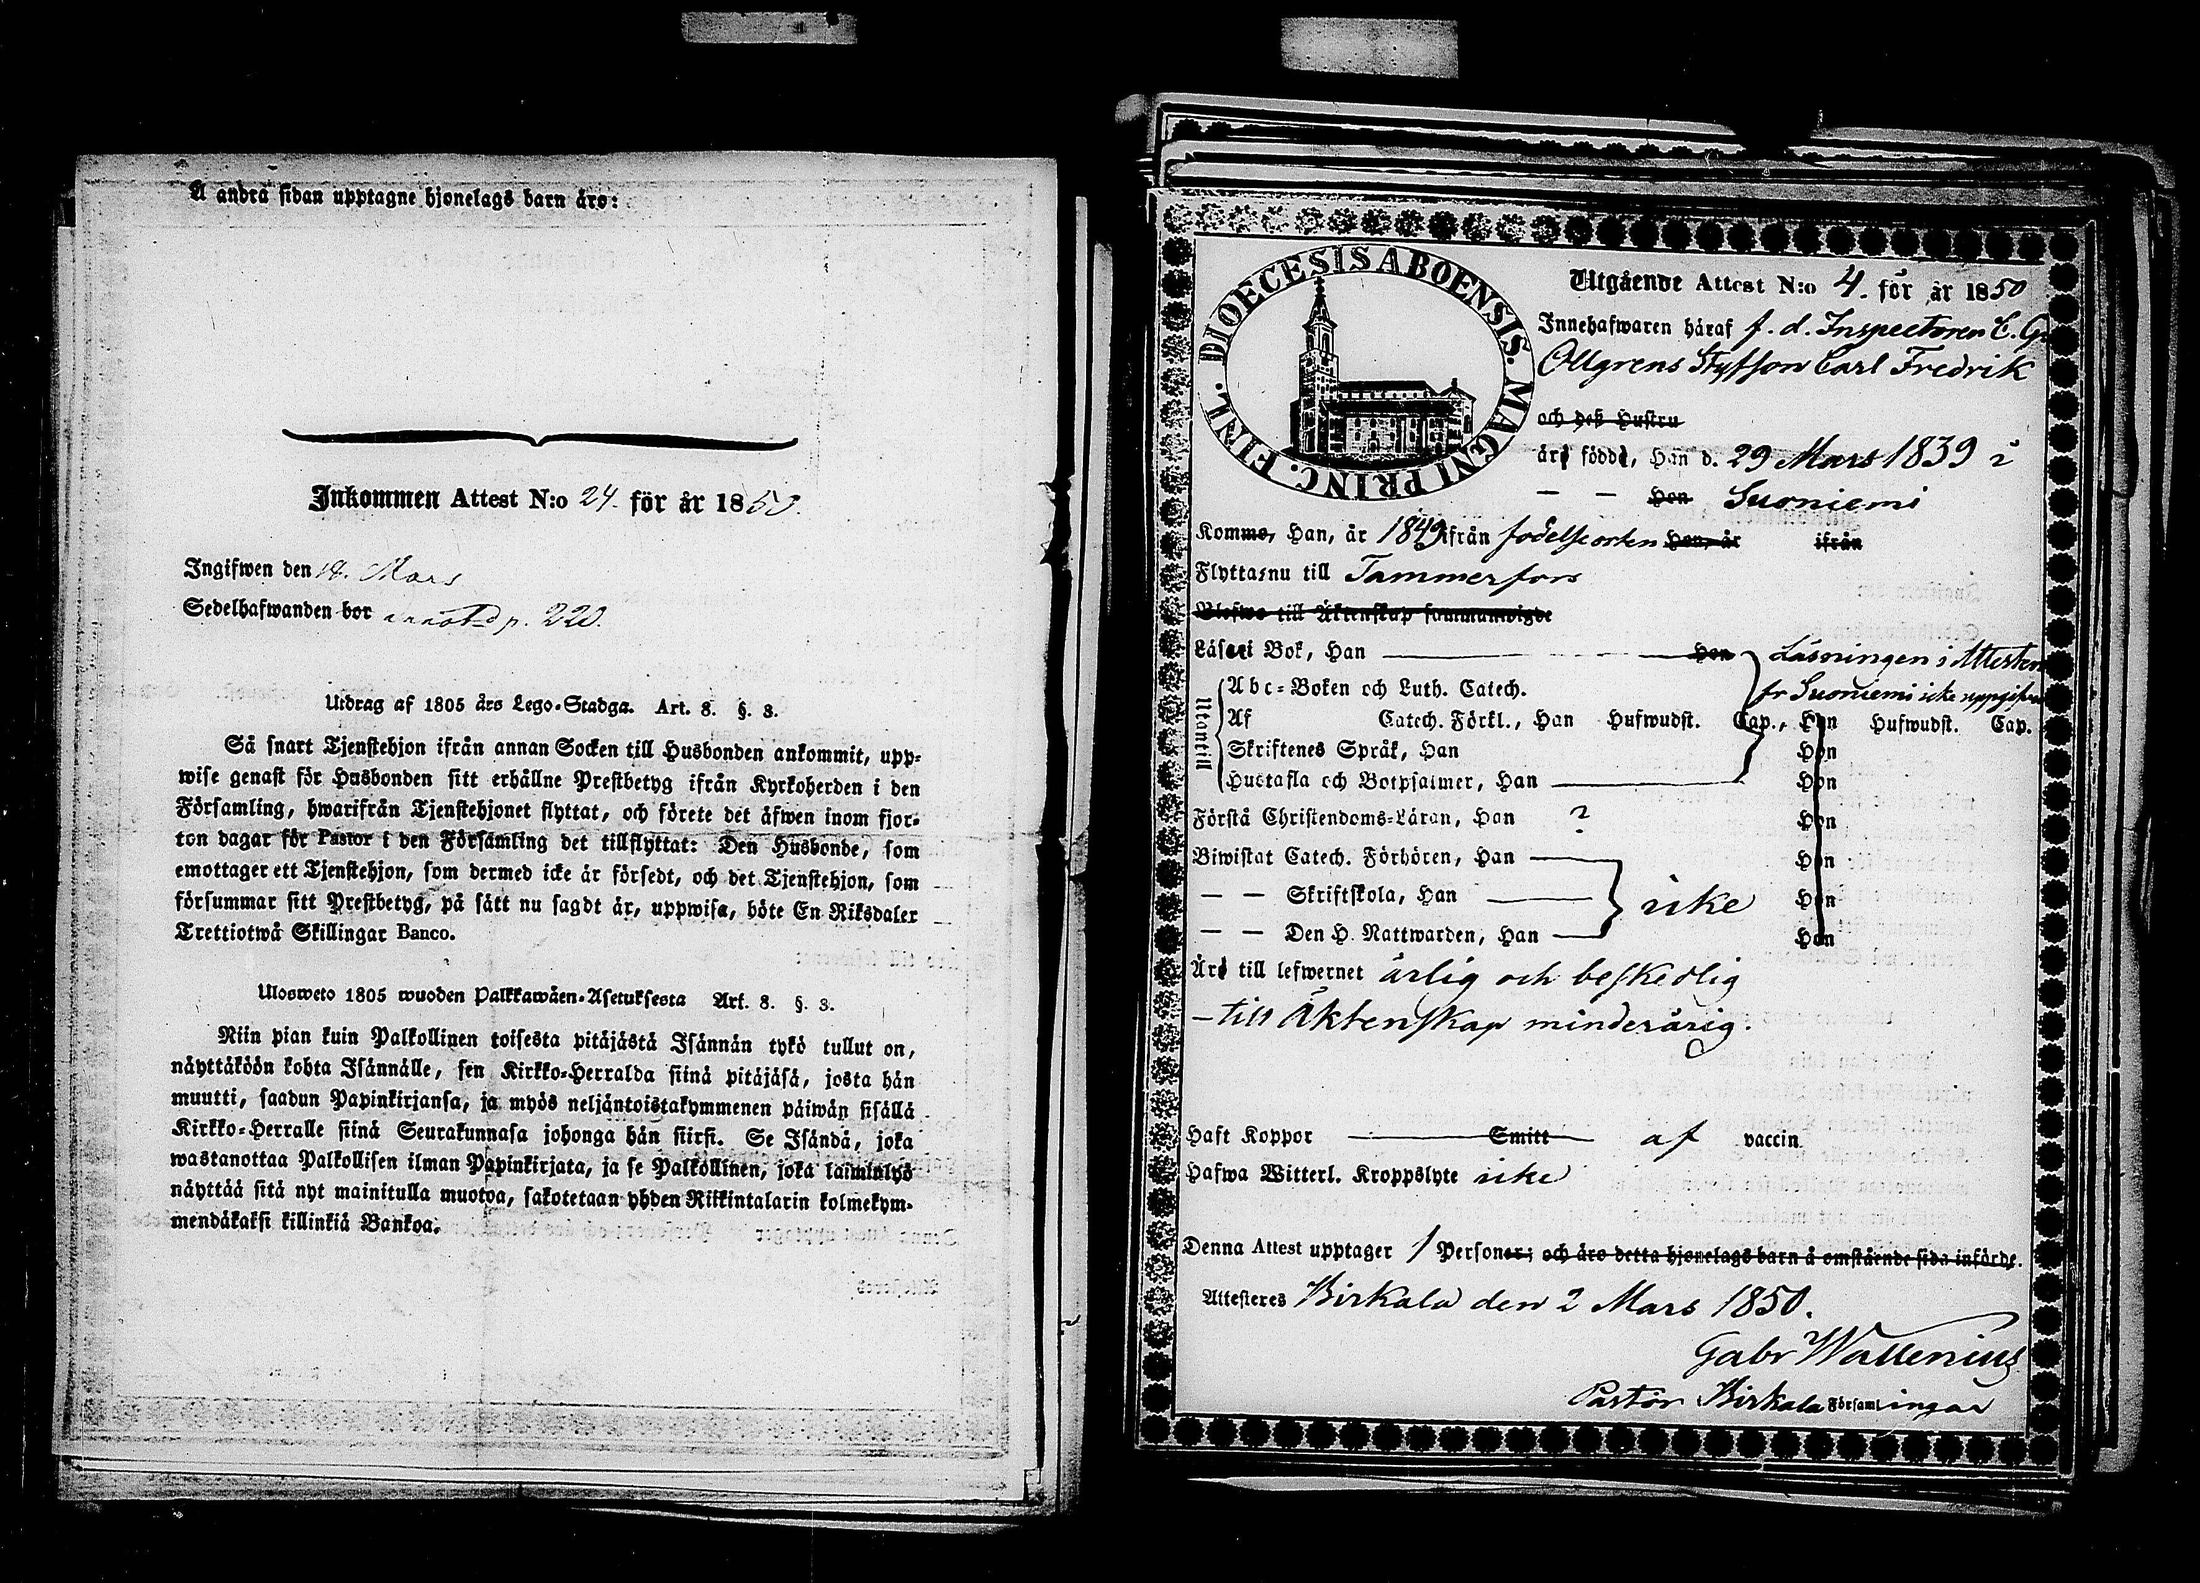 Å andra sidan upptagne hjonelags barn äro:
Inkommen Attest N:o 24. för år 1850.
Ingifwen den 18. Mars
Sedelhafwanden bor annot. p. 220.
Utdrag af 1805 års Lego-Stadga. Art. 8. §. 3.
Så snart Tjenstehjon ifrån annan Socken till Husbonden ankommit, upp-
wise genast för Husbonden sitt erhållne Prestbetyg ifrån Kyrkoherden i den
Församling, hwarifrån Tjenstehjonet flyttat, och förete det äfwen inom fjor-
ton dagar för Pastor i den Församling det tillflyttat: Den Husbonde, som
emottager ett Tjenstehjon, som dermed icke är försedt, och det Tjenstehjon, som
försummar sitt Prestbetyg, på sätt nu sagdt är, uppwisa, böte En Riksdaler
Trettiotwå Skillingar Banco.
Ulosweto 1805 wuoden Palkkawäen-Asetuksesta Art. 8. §. 3.
Niin pian kuin Palkollinen toisesta pitäjästä Isännän tykö tullut on,
näyttäköön kohta Isännälle, sen Kirkko-Herralda siinä pitäjäsä, josta hän
muutti, saadun Papinkirjansa, ja myös neljäntoistakymmenen päiwän sisällä
Kirkko-Herralle siinä Seurakunnasa johonga hän siirsi. Se Isändä, joka
wastanottaa Palkollisen ilman Papinkirjata, ja se Palkollinen, joka laiminlyö
näyttää sitä nyt mainitulla muotoa, sakotetaan yhden Riikintalarin kolmekym-
mendäkaksi killinkiä Bankoa.
DIOECESIS ABOENSIS. MAGNI PRINC. FINL.
Utgående Attest N:o 4. för år 1850
Innehafwaren häraf f. d. Inspectoren C. G.
Ollgrens Styfson Carl Fredrik
och deß Hustru
äro födde, Han d. 29 Mars 1839 i
— — Hon Suoniemi
Komme, Han, år 1849 ifrån födelseorten Hon, år ifrån
Flytta nu till Tammerfors
Blefwo till Äktenskap sammanwigde
Läser i Bok, Han Hon Läsningen i Attesten
fr Suoniemi icke uppgifven
Utantill
Abc-Boken och Luth. Catech.
Af Catech. Förkl., Han Hufwudst. Cap., Hon Hufwudst. Cap.
Skriftenes Språk, Han Hon
Hustafla och Botpsalmer, Han Hon
Förstå Christendoms-Läran, Han ? Hon
Biwistat Catech. Förhören, Han Hon
— — Skriftskola, Han icke Hon
— — Den H. Nattwarden, Han Hon
Äro till lefwernet ärlig och beskedlig
– till Äktenskap minderårig.
Haft Koppor Smitt af vaccin
Hafwa Witterl. Kroppslyte icke
Denna Attest upptager 1 Personer; och äro detta hjonelags barn å omstående sida införde.
Attesteres Birkala den 2 Mars 1850.
Gabr Wallenius
Pastor Birkala Församlingar